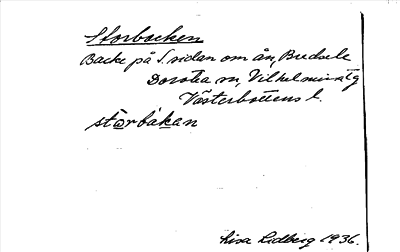 Storbacken
Backe på S. sidan om ån, Bredsele
Dorotea sn, Vilhelmina tg
Västerbottens l.
stɷrbákan
Lisa Lidberg 1936.